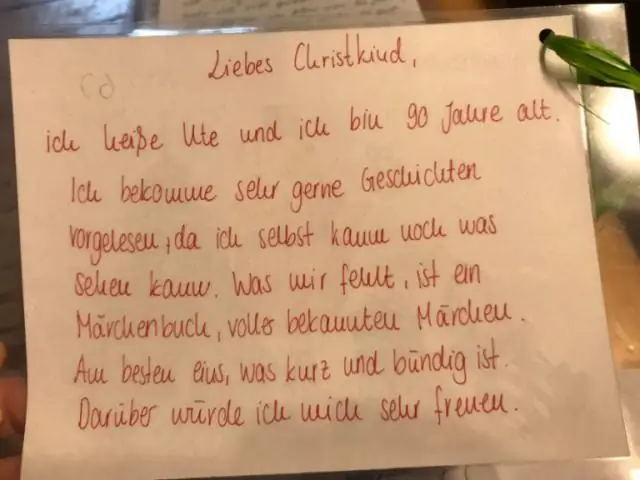 Liebes Christkind,
ich heiße Ute und ich bin 90 Jahre alt.
Ich bekomme sehr gerne Geschichten
vorgelesen, da ich selbst kaum noch was
sehen kann. Was mir fehlt, ist ein
Märchenbuch, voller bekannten Märchen.
Am besten eins, was kurz und bündig ist.
Darüber würde ich mich sehr freuen.